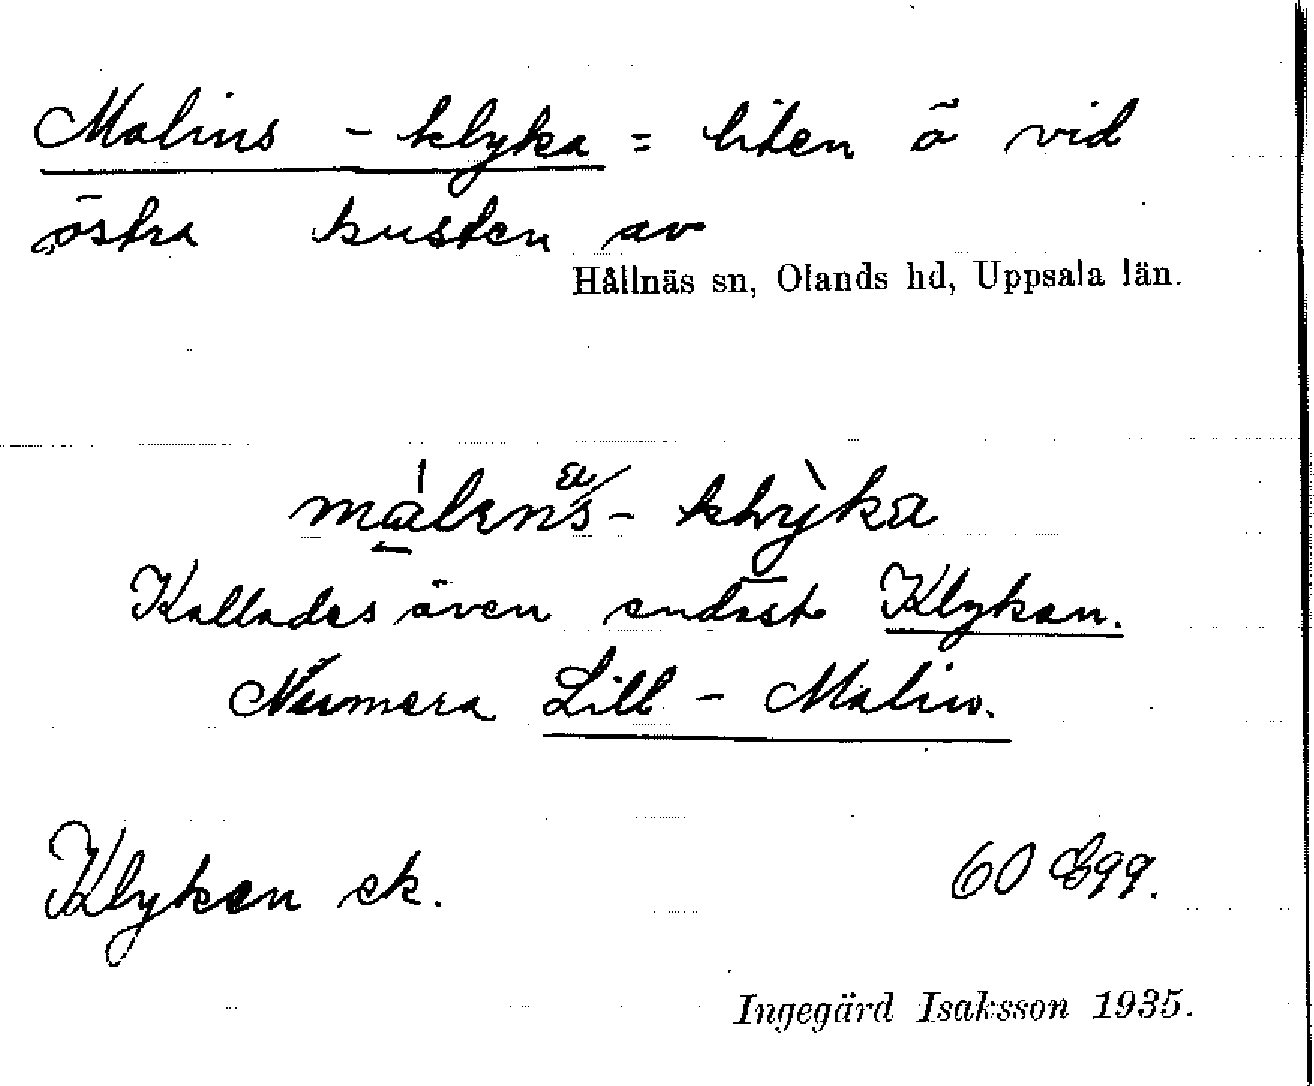 Malins - klyka = liten ö vid
östra kusten av
Hållnäs sn, Olands hd, Uppsala län.
Kallades även endast Klykan.
Numera Lill - Malin.
Klykan ek. 60 E99.
Ingegärd Isaksson 1935.